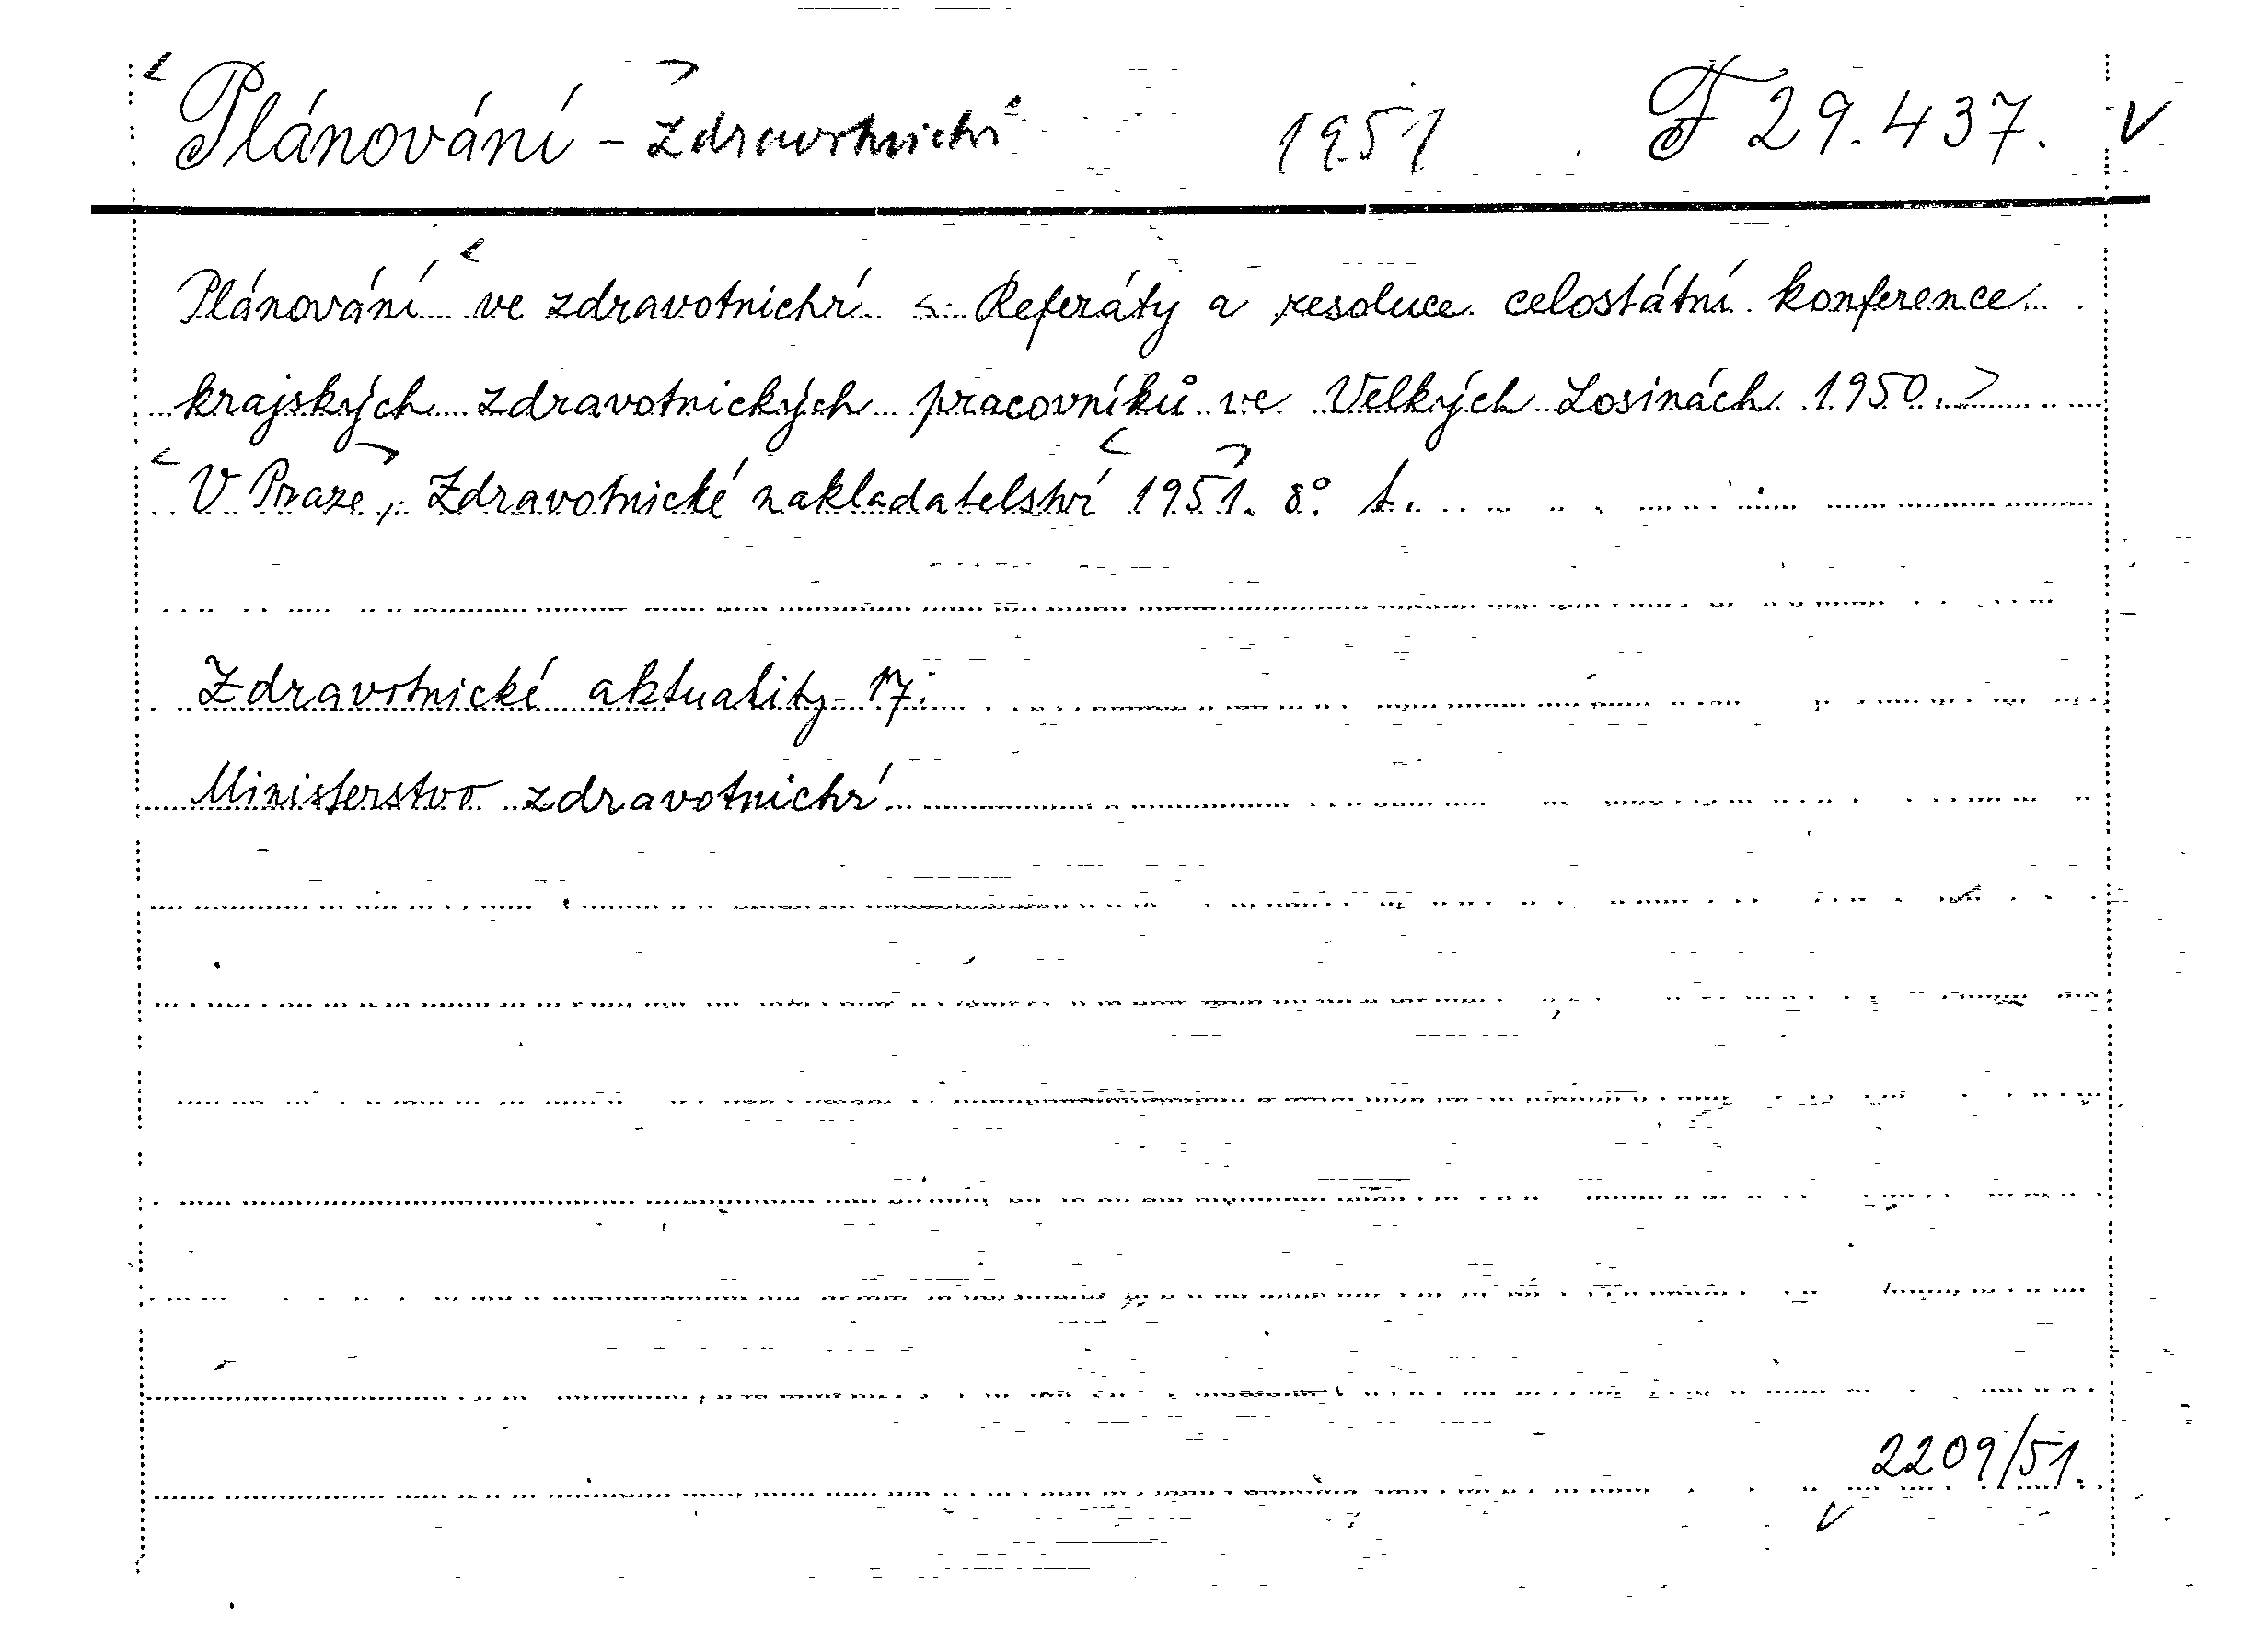 Plánování - Zdravotnictví 1951 F 29.437. V.
Plánování ve zdravotnictví <. Referáty a resoluce celostátní konference
krajských zdravotnických pracovníků ve Velkých Losinách 1950.>
V Praze, Zdravotnické nakladatelství 1951. 8°. t.
Zdravotnické aktuality 17.
Ministerstvo zdravotnictví
2209/51.